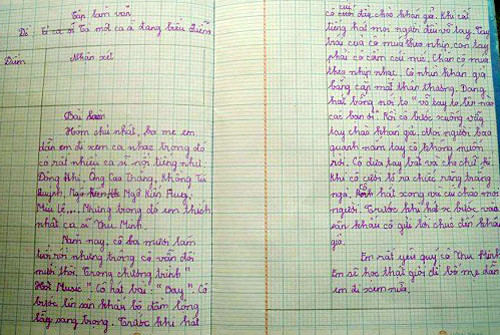 Tập làm văn
Đề: Tả ca sĩ Tả một ca sĩ đang biểu diễn
Điểm Nhận xét
Bài làm
Hôm chủ nhật, ba mẹ em
dẫn em đi xem ca nhạc trong đó
có rất nhiều ca sĩ nổi tiếng như
Đông Nhi, Ông Cao Thắng, Khổng Tú
Quỳnh, Ngô Kiến Huy,
Miu Lê,... Nhưng trong đó em thích
nhất ca sĩ Thu Minh.
Năm nay, cô ba mươi lăm
tuổi rồi nhưng trông cô vẫn đôi
mươi thôi. Trong chương trình "
Music". Cô hát bài "Bay". Cô
bước lên sân khấu bộ đầm lông
lẫy sang trọng. Trước khi hát
cô cúi đầy chào khán giả. Khi cất
tiếng hát mọi người đều vỗ tay. Tay
trái của cô múa theo nhịp còn tay
phải cô cầm cái mic. Chân cô múa
theo nhịp nhạc. Cô nhìn khán giả
bằng cặp mắt thân thương. Đang
hát bỗng nói to "vỗ tay to lên nào
các bạn ơi". Rồi cô bước xuống vẫy
tay chào khán giả. Mọi người bao
quanh nắm tay cô không muốn
rời. Cô đưa tay bắt vài chú bé.
Khi cô cười lộ ra chiếc răng trắng
ngà. hát xong xin cúi chào mọi
người. Trước khi hát bước vào
sân khấu cô gửi lời chúc đến khán
giả.
Em rất yêu quý cô Thu Minh
Em sẽ học thật giỏi để bố mẹ dẫn
em đi xem nữa.